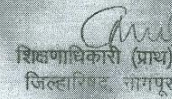 शिक्षणाधिकारी (प्राथ)
जिल्हापरिषद, नागपूर